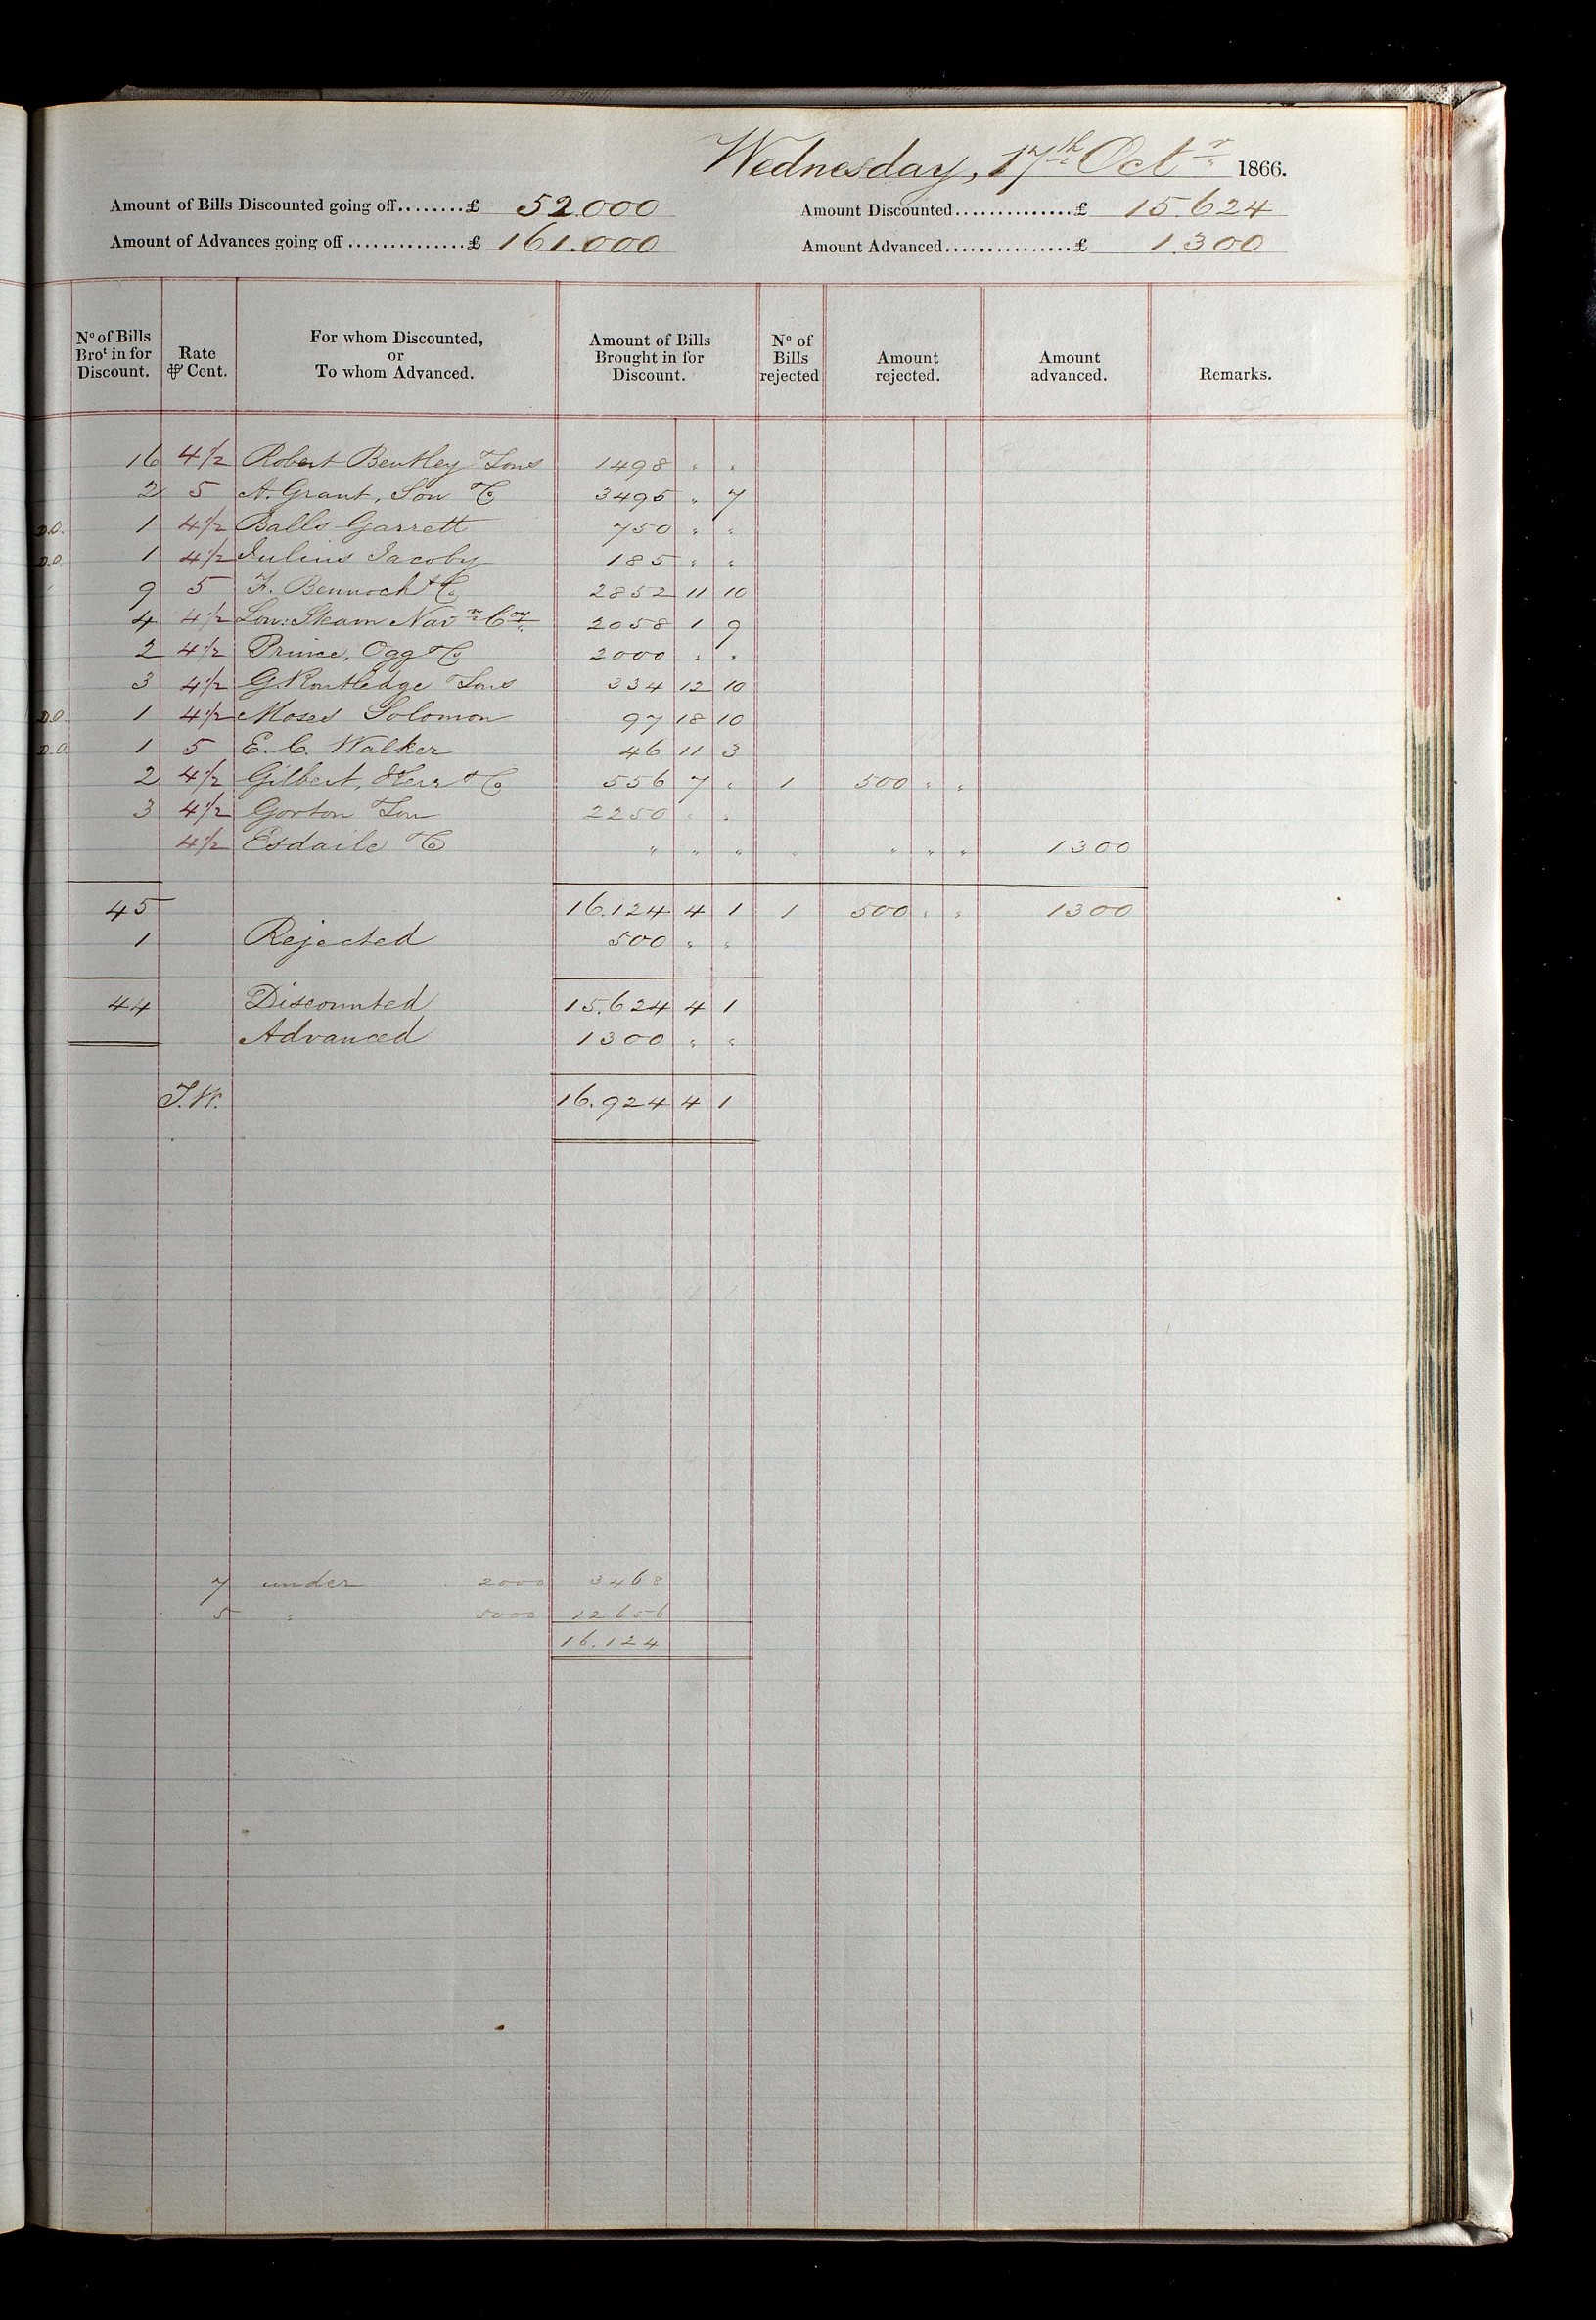 Wednesday, 17th Octr 1866.
Amount of Bills Discounted going off........£ 52.000 Amount Discounted..............£ 15.624
Amount of Advances going off..............£ 161.000 Amount Advanced................£ 1.300
No of Bills Brot in for Discount. Rate ⅌ Cent. For whom Discounted, or To whom Advanced. Amount of Bills Brought in for Discount. No of Bills rejected Amount rejected. Amount advanced. Remarks.
16 4½ Robert Bentley & Sons 1498 " "
2 5 A. Grant, Son & Co 3495 " 7
D.O. 1 4½ Balls Garrett 750 " "
D.O. 1 4½ Julius Jacoby 185 " "
9 5 F. Bennoch & Co 2852 11 10
4 4½ Lon: Steam Navn Coy. 2058 1 9
2 4½ Prince, Ogg & Co 2000 " "
3 4½ G. Routledge & Sons 334 12 10
D.O. 1 4½ Moses Solomon 97 18 10
D.O. 1 5 E. C. Walker 46 11 3
2 4½ Gilbert, Kerr & Co 556 7 " 1 500 " "
3 4½ Gorton & Son 2250 " "
4½ Esdaile & Co " " " " " " " 1300
45 16.124 4 1 1 500 " " 1300
1 Rejected 500 " "
44 Discounted 15.624 4 1
Advanced 1300 " "
J.W. 16.924 4 1
7 under 2000 3468
5 " 5000 12656
16.124